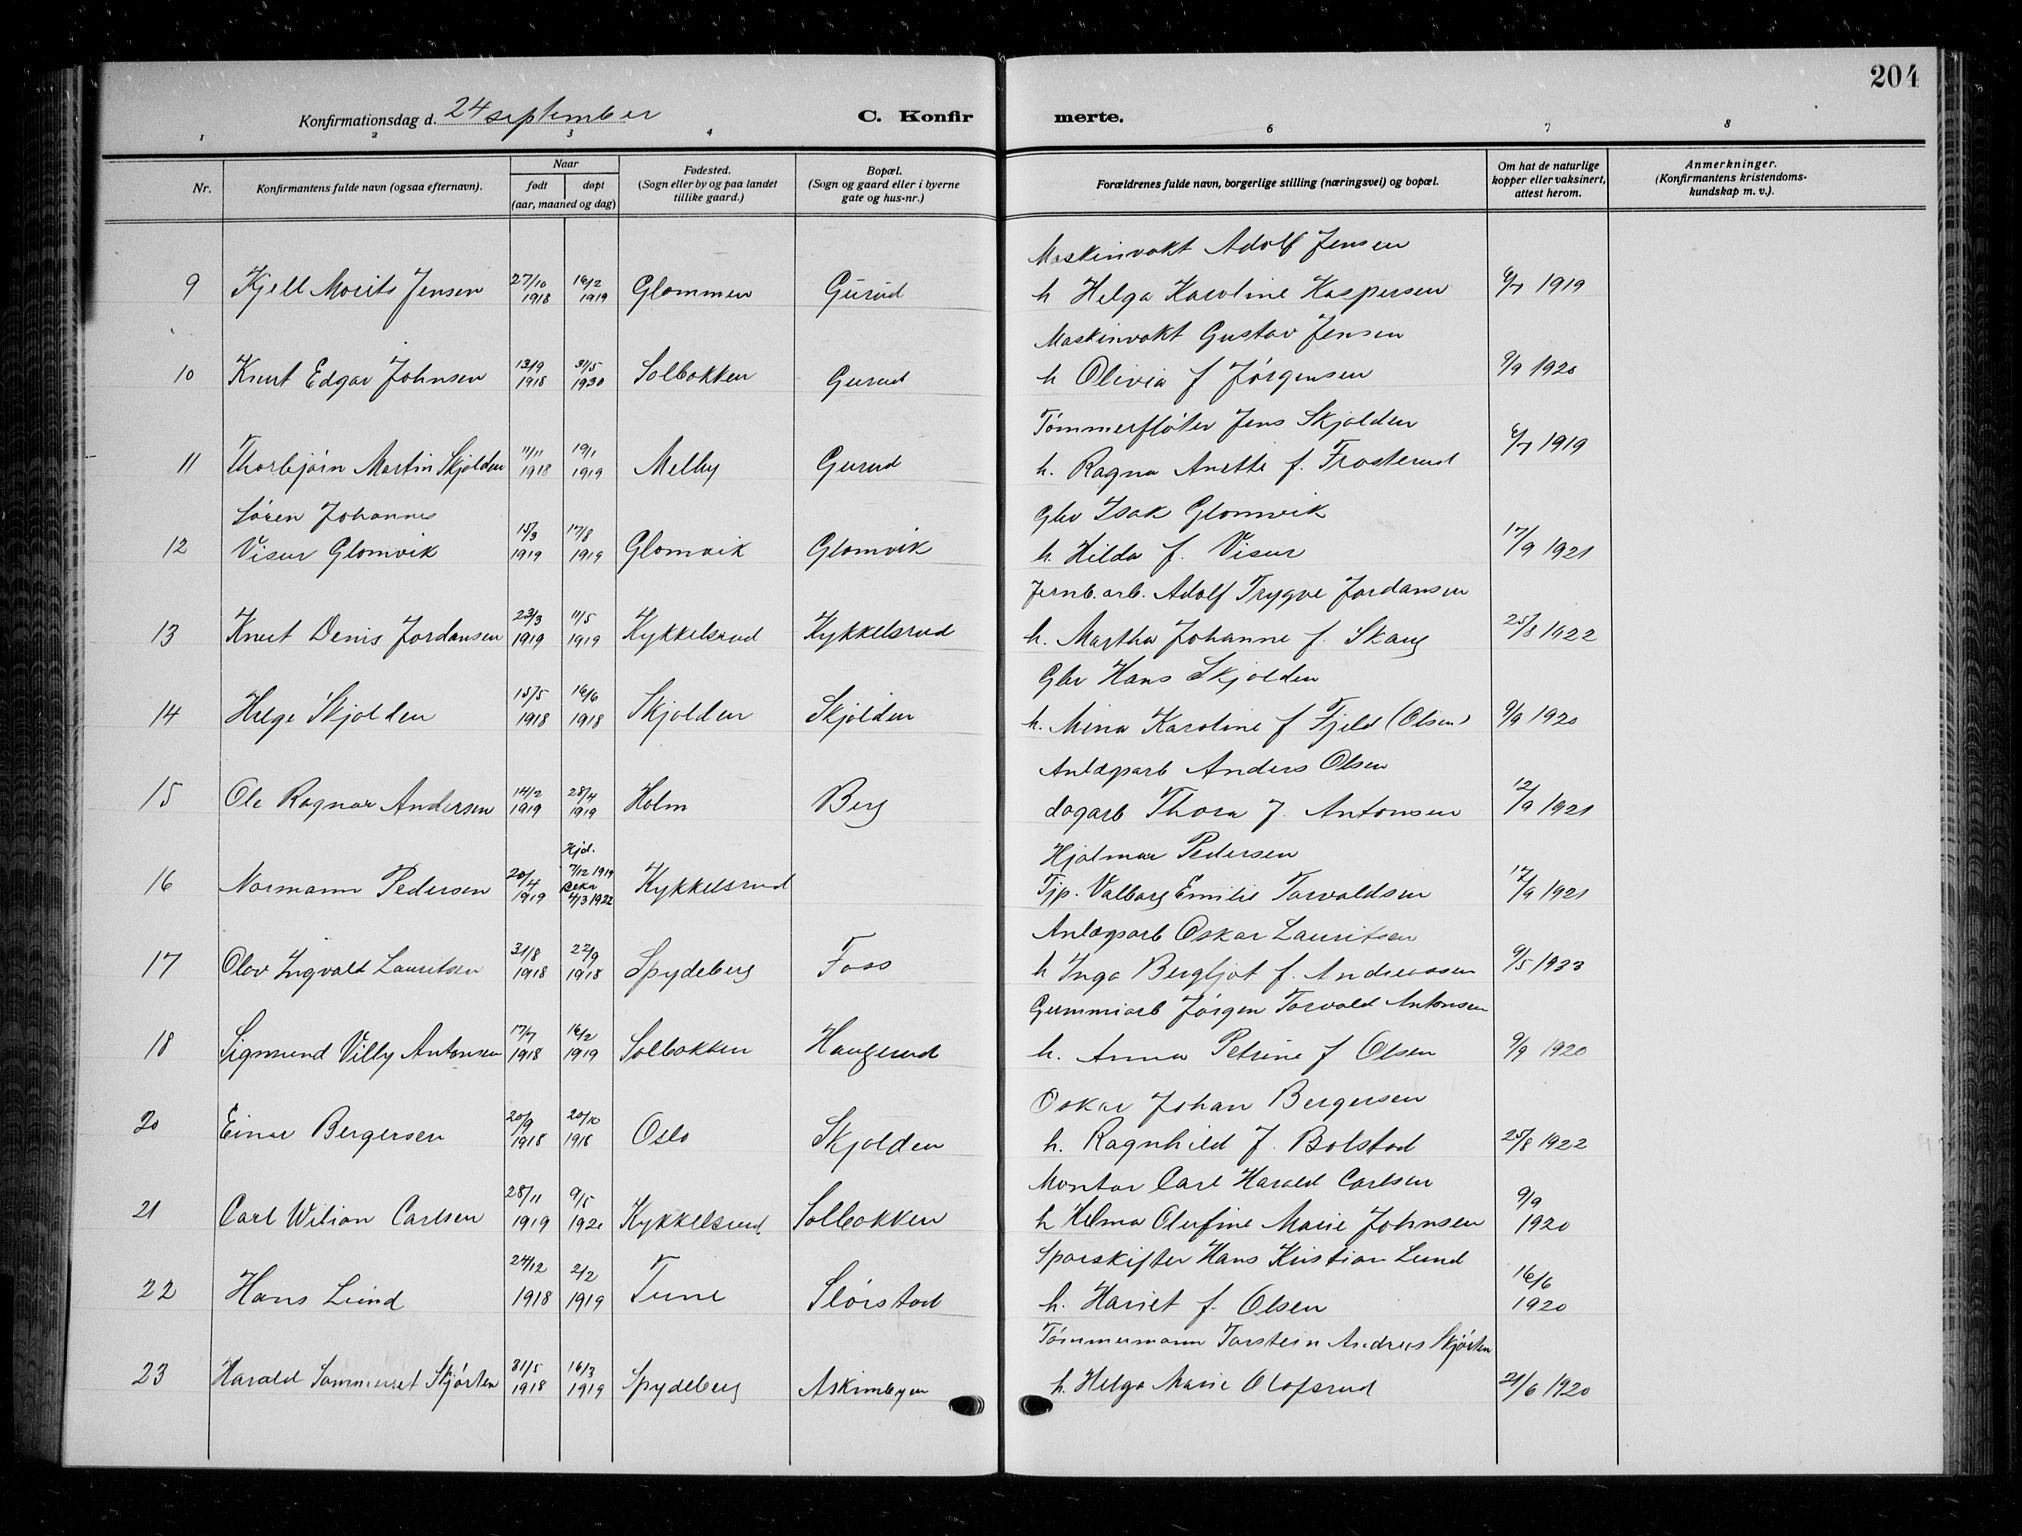 204
Konfirmationsdag d. 24 september C. Konfir merte.
1 2 3 4 6 7 8
Nr. Konfirmantens fulde navn (ogsaa efternavn). Naar født døpt (aar, maaned og dag) Fødested. (Sogn eller by og paa landet tillike gaard.) Bopæl. (Sogn og gaard eller i byerne gate og hus-nr.) Forældrenes fulde navn, borgerlige stilling (næringsvei) og bopæl. Om hat de naturlige kopper eller vaksinert, attest herom. Anmerkninger. (Konfirmantens kristendoms-kundskap m. v.).
Maskinvakt Adolf Jensen
9 Kjell Morits Jensen 27/10 1918 16/2 1919 Glommen Gurud h Helga Karoline Kaspersen 6/7 1919
Maskinvakt Gustav Jensen
10 Knut Edgar Johnsen 13/9 1918 31/5 1930 Solbakken Gurud h Olivia f Jørgensen 9/9 1920
Tømmerfløter Jens Skjolden
11 Thorbjørn Martin Skjolden 11/11 1918 19/1 1919 Melby Gurud h. Ragna Anette f. Frosterud 6/7 1919
Søren Johannes Gbr Isak Glomvik
12 Visur Glomvik 15/3 1919 17/8 1919 Glomvik Glomvik h. Hilda f. Visur 17/9 1921
Jernb.arb. Adolf Trygve Jordansen
13 Knut Denis Jordansen 23/3 1919 11/5 1919 Kykkelsrud Kykkelsrud h. Martha Johanne f. Skaug 25/8 1922
Gbr Hans Skjolden
14 Helge Skjolden 15/5 1918 16/6 1918 Skjolden Skjolden h. Mina Karoline f Fjeld (Olsen) 9/9 1920
Anlægsarb Anders Olsen
15 Ole Ragnar Andersen 14/2 1919 28/4 1919 Holm Berg dagarb Thora f. Antonsen 12/9 1921
Hjd. Hjalmar Pedersen
16 Normann Pedersen 20/4 1919 7/12 1919 4/3 1922 Kykkelsrud Tjp. Valborg Emilie Torvaldsen 17/9 1921
Anlægsarb Oskar Lauritsen
17 Olav Ingvald Lauritsen 31/8 1918 22/9 1918 Spydeberg Foss h Inga Bergljot f. Andreassen 9/5 1933
Gummiarb Jørgen Torvald Antonsen
18 Sigmund Villy Antonsen 17/7 1918 16/2 1919 Solbakken Haugerud h. Anna Petrine f Olsen 9/9 1920
Oskar Johan Bergersen
20 Einar Bergersen 20/9 1918 20/10 1918 Oslo Skjolden h. Ragnhild f. Bolstad 25/8 1922
Montør Carl Harald Carlsen
21 Carl Wilian Carlsen 28/11 1919 9/5 1920 Kykkelsrud Solbakken h Helma Olufine Marie Johnsen 9/9 1920
Sporskifter Hans Kristian Lund
22 Hans Lund 24/12 1918 2/2 1919 Tune Slørstad h. Hariet f. Olsen 16/6 1920
Tømmermann Torstein Andreas Skjørten
23 Harald Sommerset Skjørten 31/5 1918 16/3 1919 Spydeberg Askimbyen h. Helga Marie Olafsrud 21/6 1920